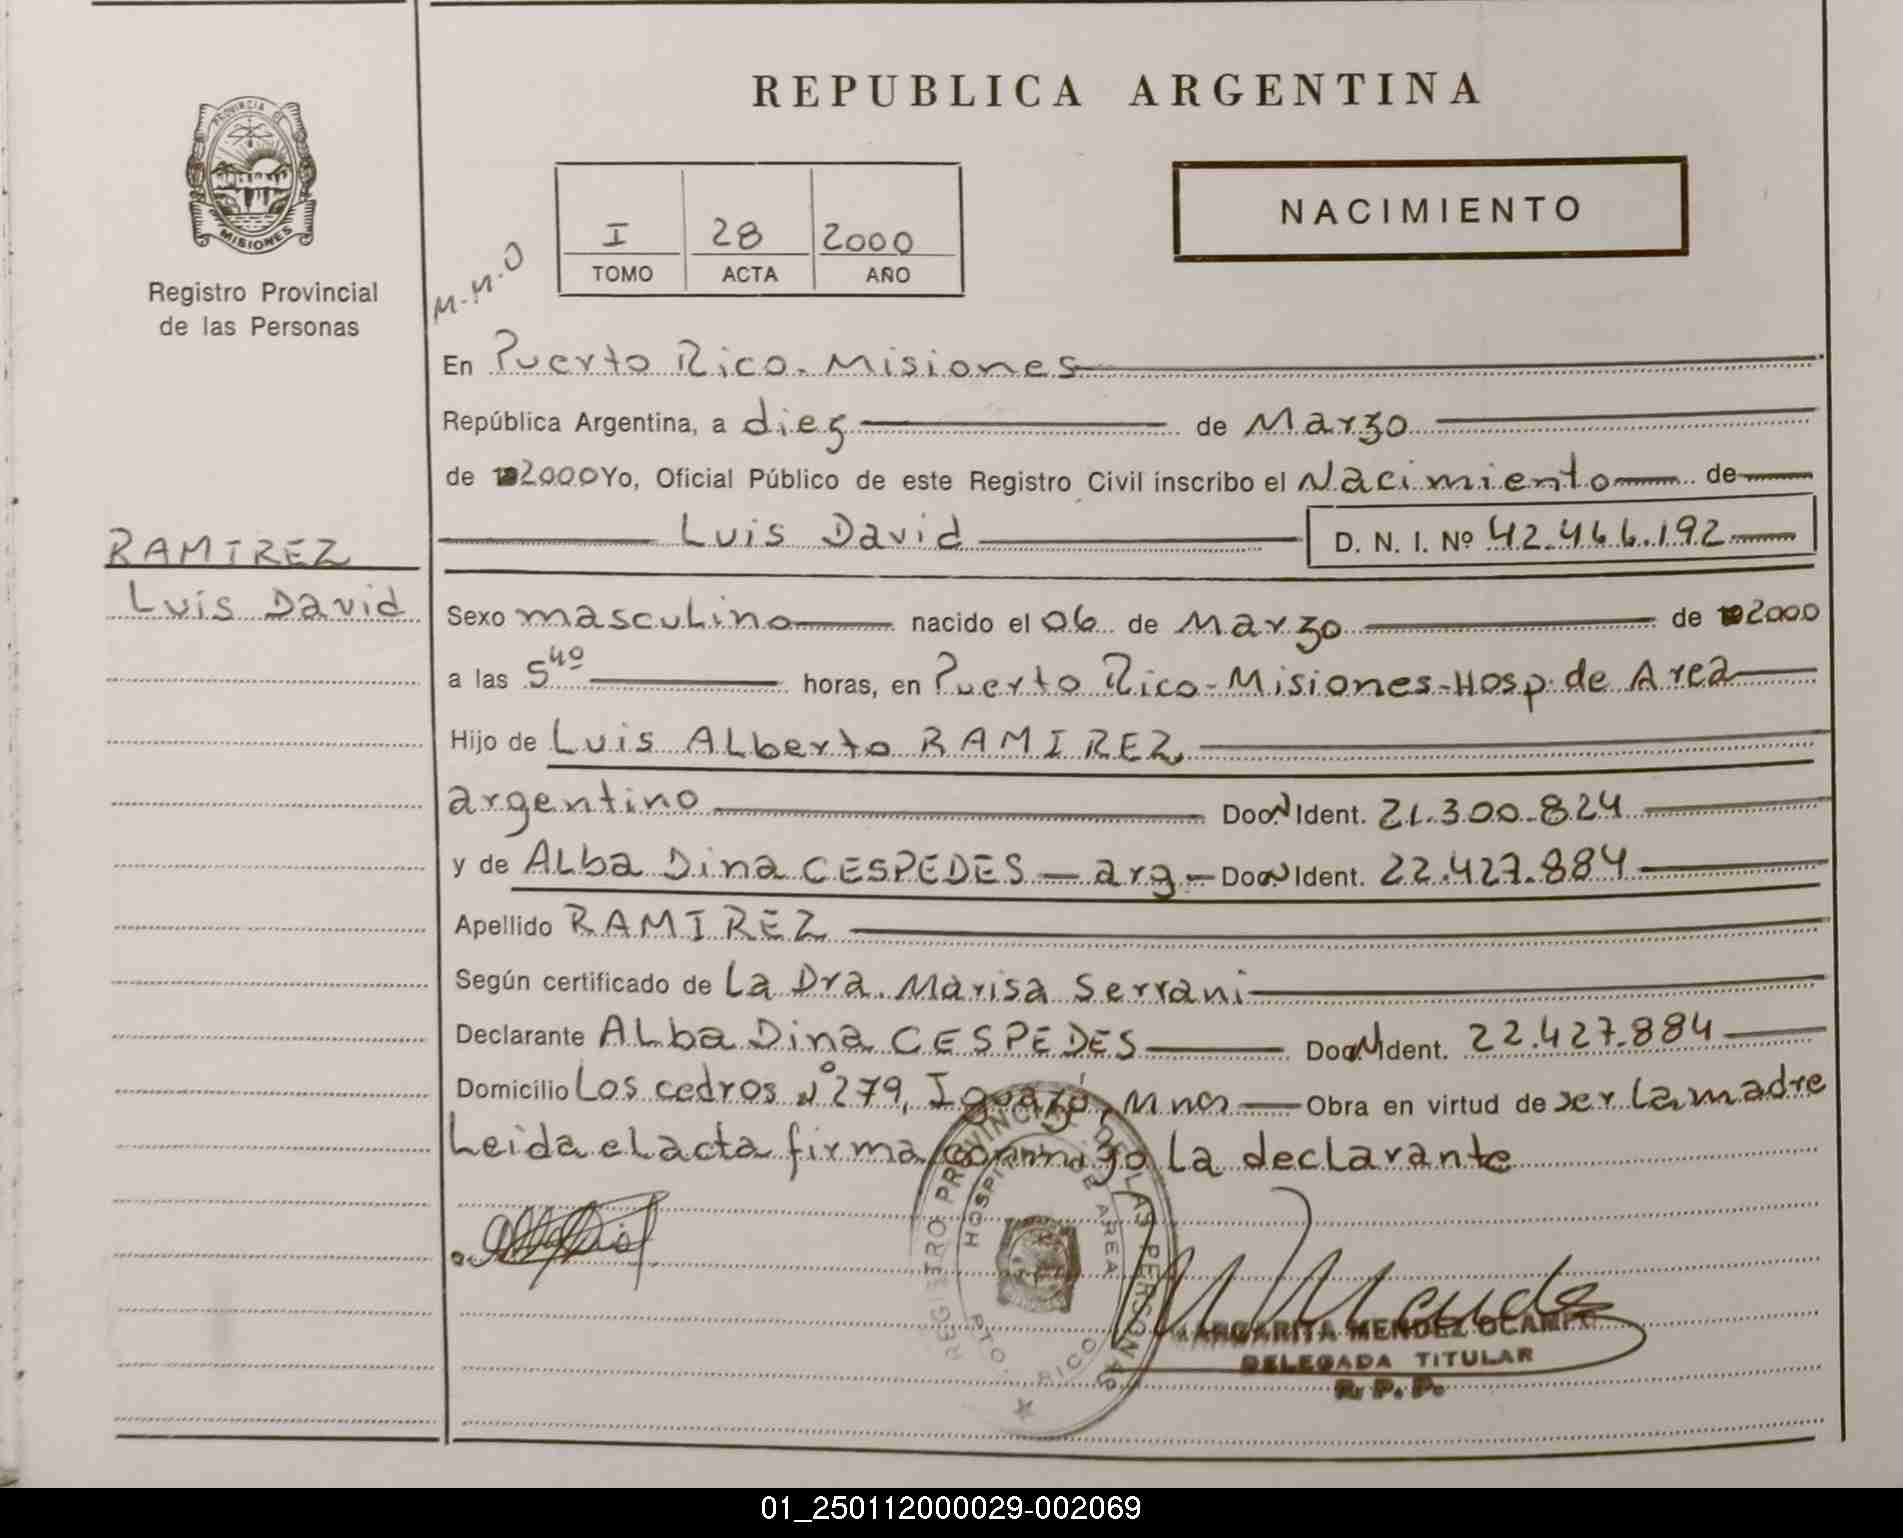 REPUBLICA ARGENTINA
PROVINCIA DE
MISIONES
Registro Provincial
de las Personas
NACIMIENTO
I 28 2000
TOMO ACTA AÑO
M.M.O
En Puerto Rico. Misiones
República Argentina, a diez de Marzo
de 2000 Yo, Oficial Público de este Registro Civil inscribo el Nacimiento de
Luis David D. N. I. Nº 42.466.192
RAMIREZ
Luis David
Sexo masculino nacido el 06 de Marzo de 2000
a las 5 40 horas, en Puerto Rico-Misiones-Hosp. de Area
Hijo de Luis Alberto RAMIREZ
argentino Ident. 21.300.824
y de Alba Dina CESPEDES - arg - Ident. 22.427.884
Apellido RAMIREZ
Según certificado de La Dra. Marisa Serrani
Declarante Alba Dina CESPEDES Ident. 22.427.884
Domicilio Los cedros Nº 279, Iguazú, Mnes Obra en virtud de ser la madre
Leida el acta firma conmigo la declarante
REGISTRO PROVINCIAL DE LAS PERSONAS
HOSPITAL DE AREA
PTO. RICO
MARGARITA MENDEZ OCAMPO
DELEGADA TITULAR
R. P. P.
01_250112000029-002069